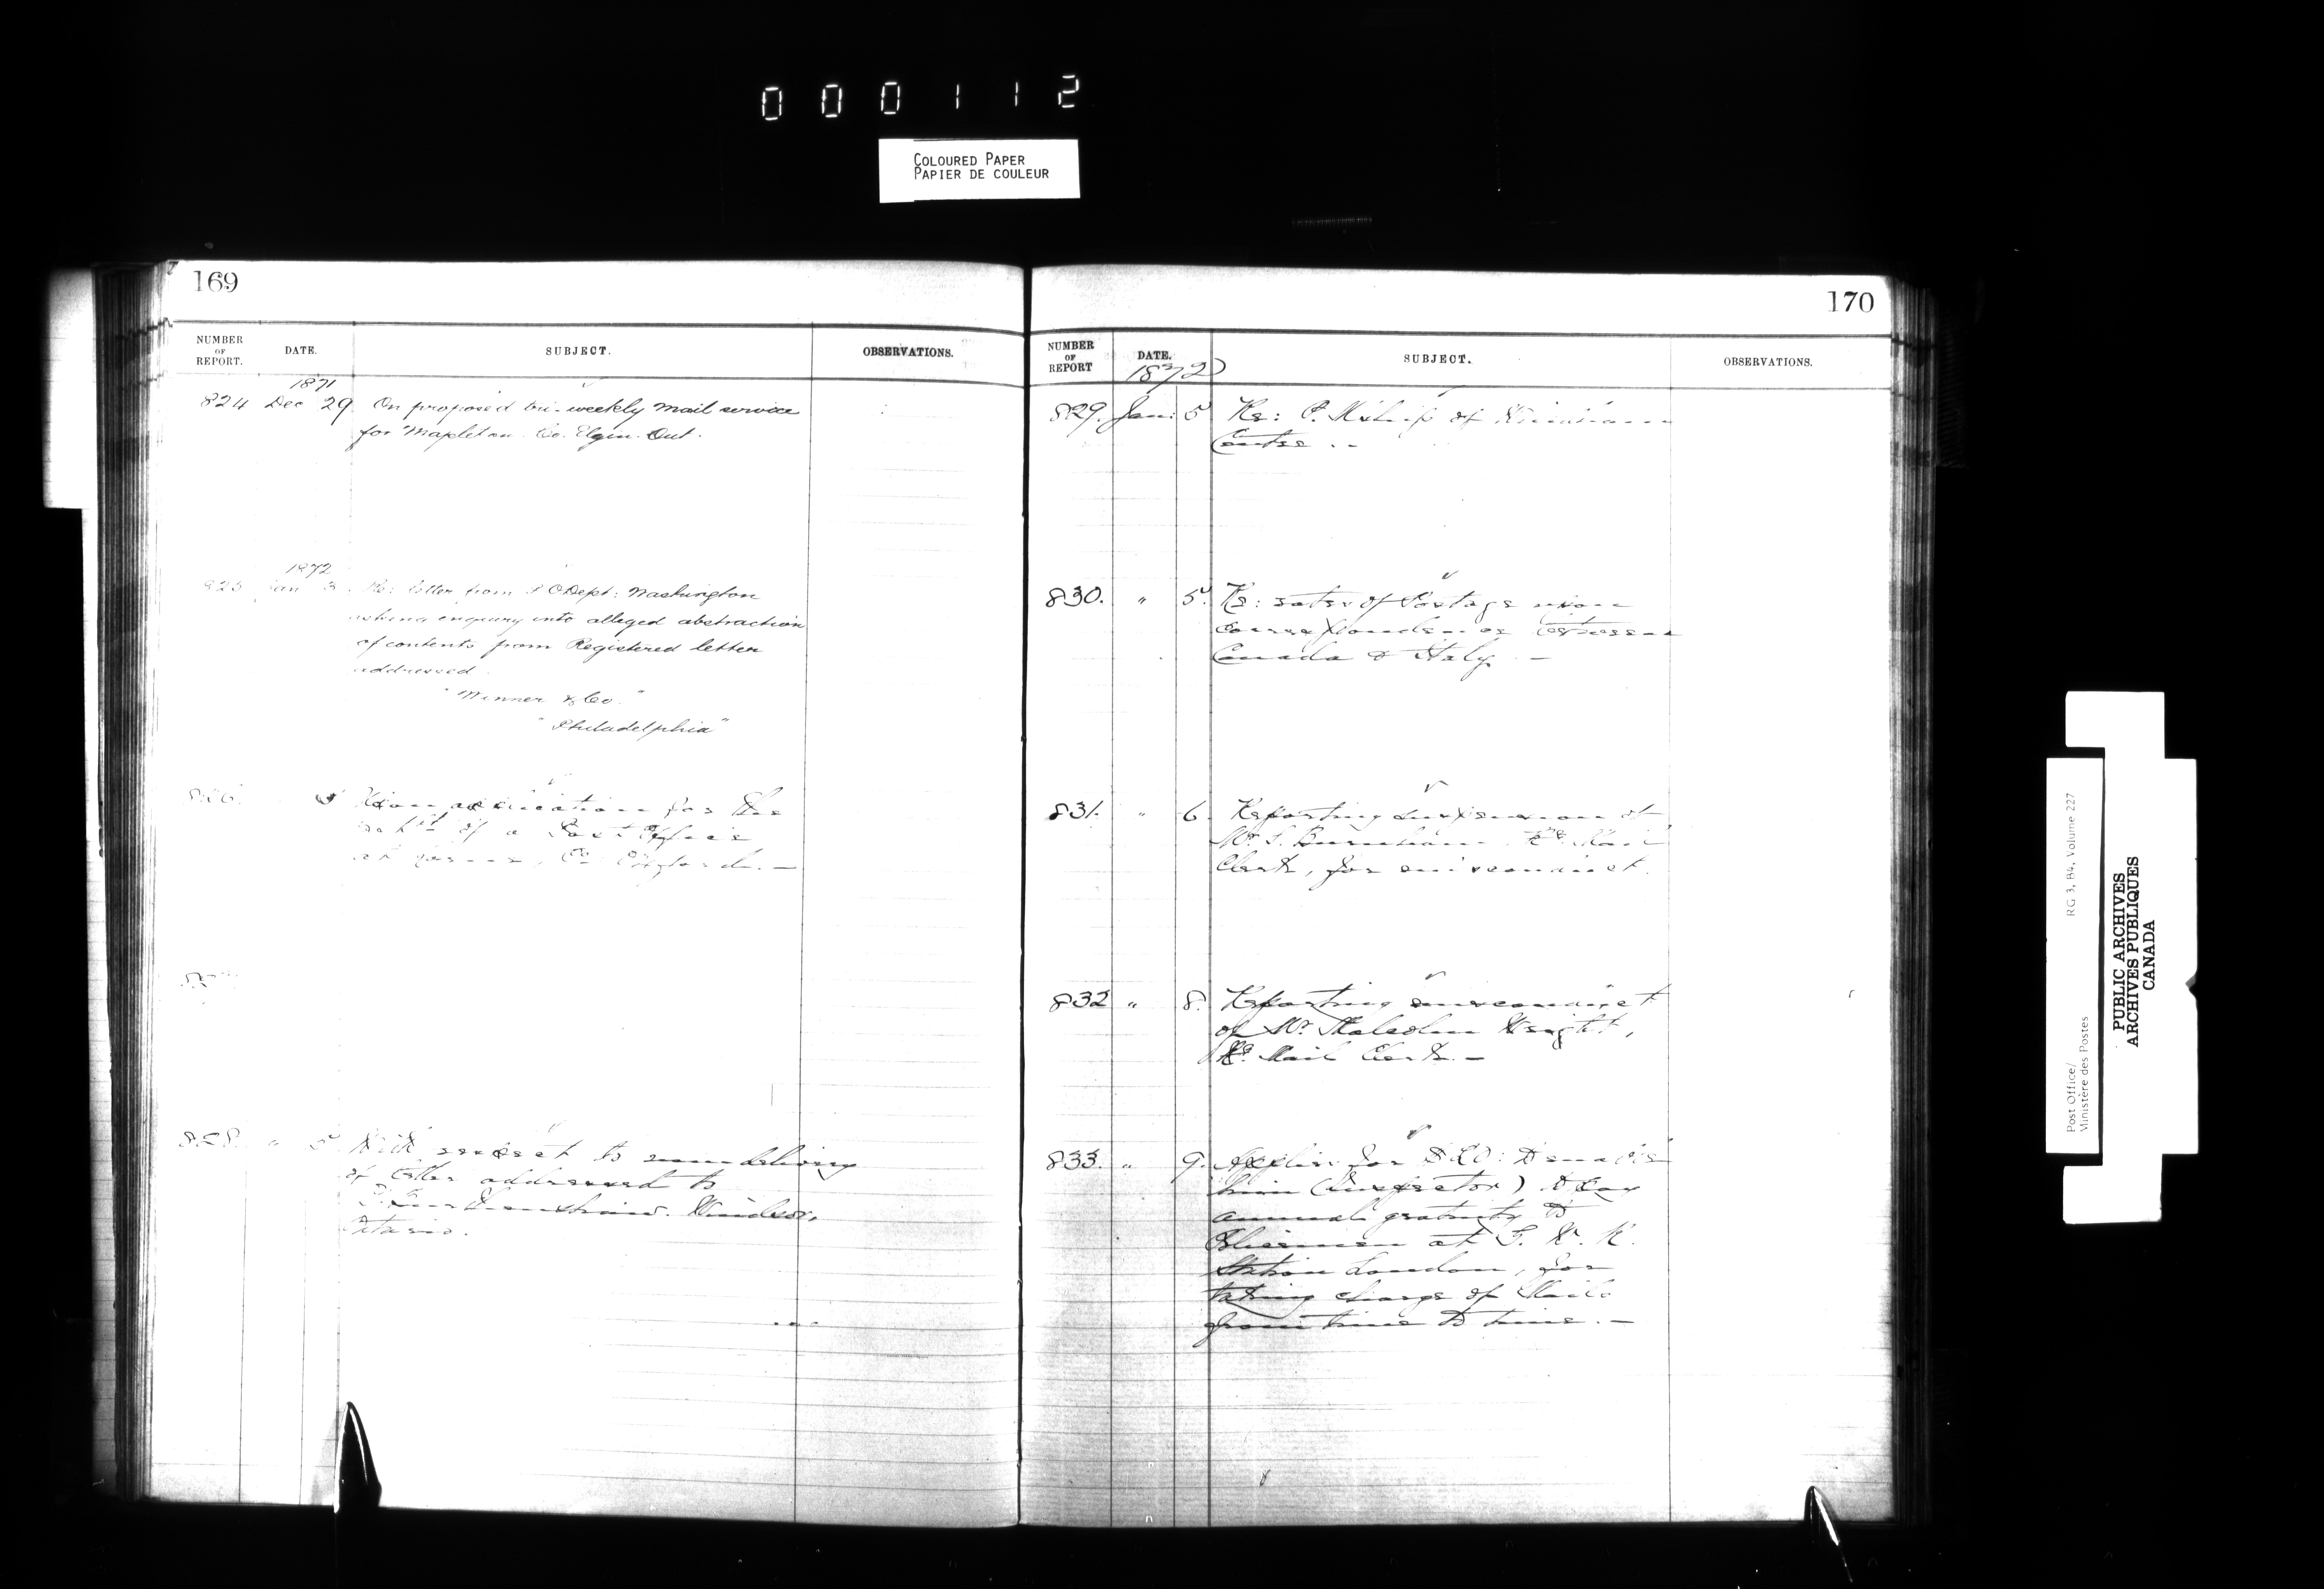 000112
COLOURED PAPER
PAPIER DE COULEUR
169
NUMBER OF REPORT. DATE. SUBJECT. OBSERVATIONS.
1871
824 Dec 29 On proposed tri-weekly mail service
for Mapleton. Co. Elgin. Ont.
1872
825 Jan 3 Re: letter from P O Dept: Washington
asking enquiry into alleged abstraction
of contents from Registered letter
addressed
"Minner & Co."
"Philadelphia"
826. for the
of a Post Office
at Co. Oxford. —
828. " 5 With respect to non delivery
of letter addressed to
Windsor,
Ontario.
170
NUMBER OF REPORT DATE. SUBJECT. OBSERVATIONS.
1872
829. Jan: 5 Re: P. of
Centre ..
830. " 5. Re: rates of Postage upon
correspondence between
Canada & Italy. —
831. " 6. Reporting suspension of
Mr. Ry. Mail
Clerk, for misconduct.
832 " 8. Reporting misconduct
of Mr. Malcolm Wright,
Ry. Mail Clerk. —
833. " 9. for
him (Inspector) to pay
annual gratuity to
Policemen at G. W. R.
Station London, for
taking charge of Mails
from time to time. —
Post Office/ RG 3, B4, Volume 227
Ministère des Postes
PUBLIC ARCHIVES
ARCHIVES PUBLIQUES
CANADA